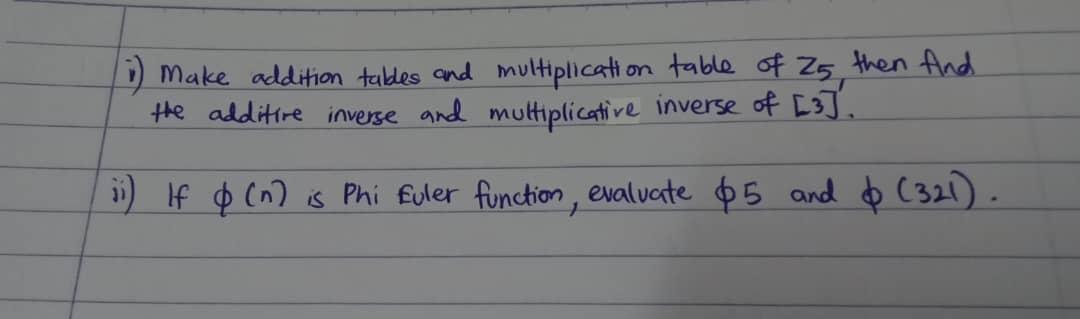 i) Make addition tables and multiplication table of Z5, then find
the additire inverse and multiplicative inverse of [3].
ii) If ϕ (n) is Phi Euler function, evaluate ϕ5 and ϕ (321).